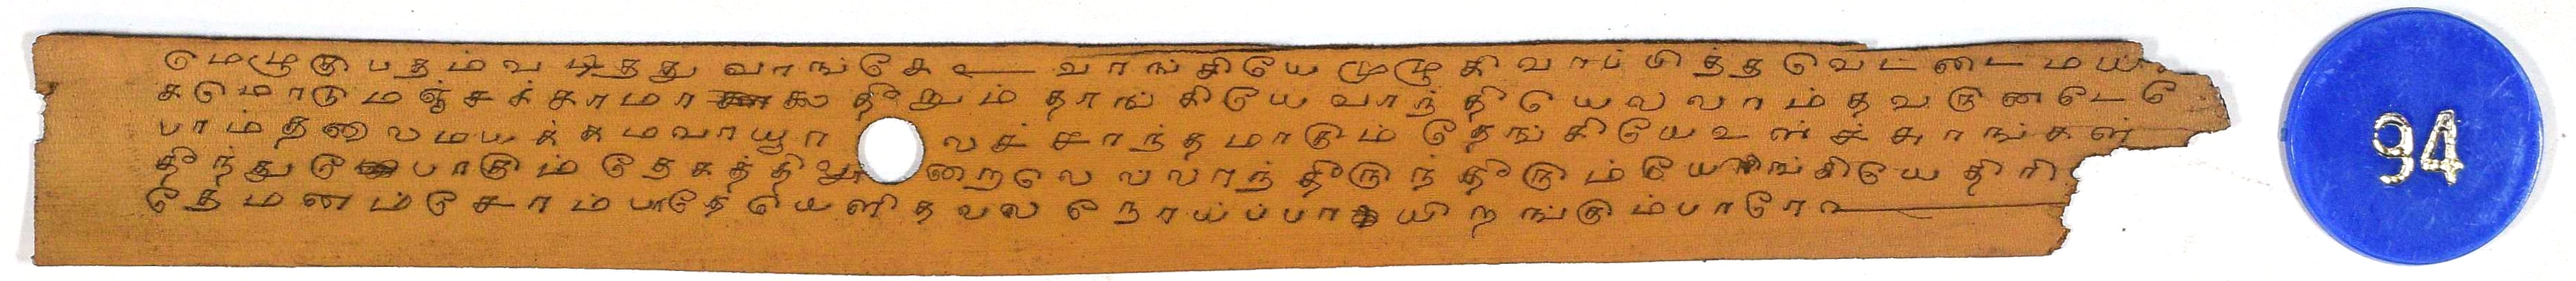 மெழுகு பதம் வடித்து வாங்கே உ — வாங்கியே முழுகி வாப் பித்த வெட்டை மய
கமொடு மஞ்சக் காமா லை தீறும் தாங் கியே வாந் தியெலலாம் தவருனடே
பாம் தலை மயக்கம வாயுா லச் சாந்தமாகும் தேங் கியே உள் ச் சுரங்கள்
தீந்து போகும் தேகத்தி னறலெ ல்லாந் தீருந் தீரும் யேங்கியே திரி
தே மனம் சோம்பாதே யெளிதவல நோய்ப்பாயிறங்கும் பாரே —
94